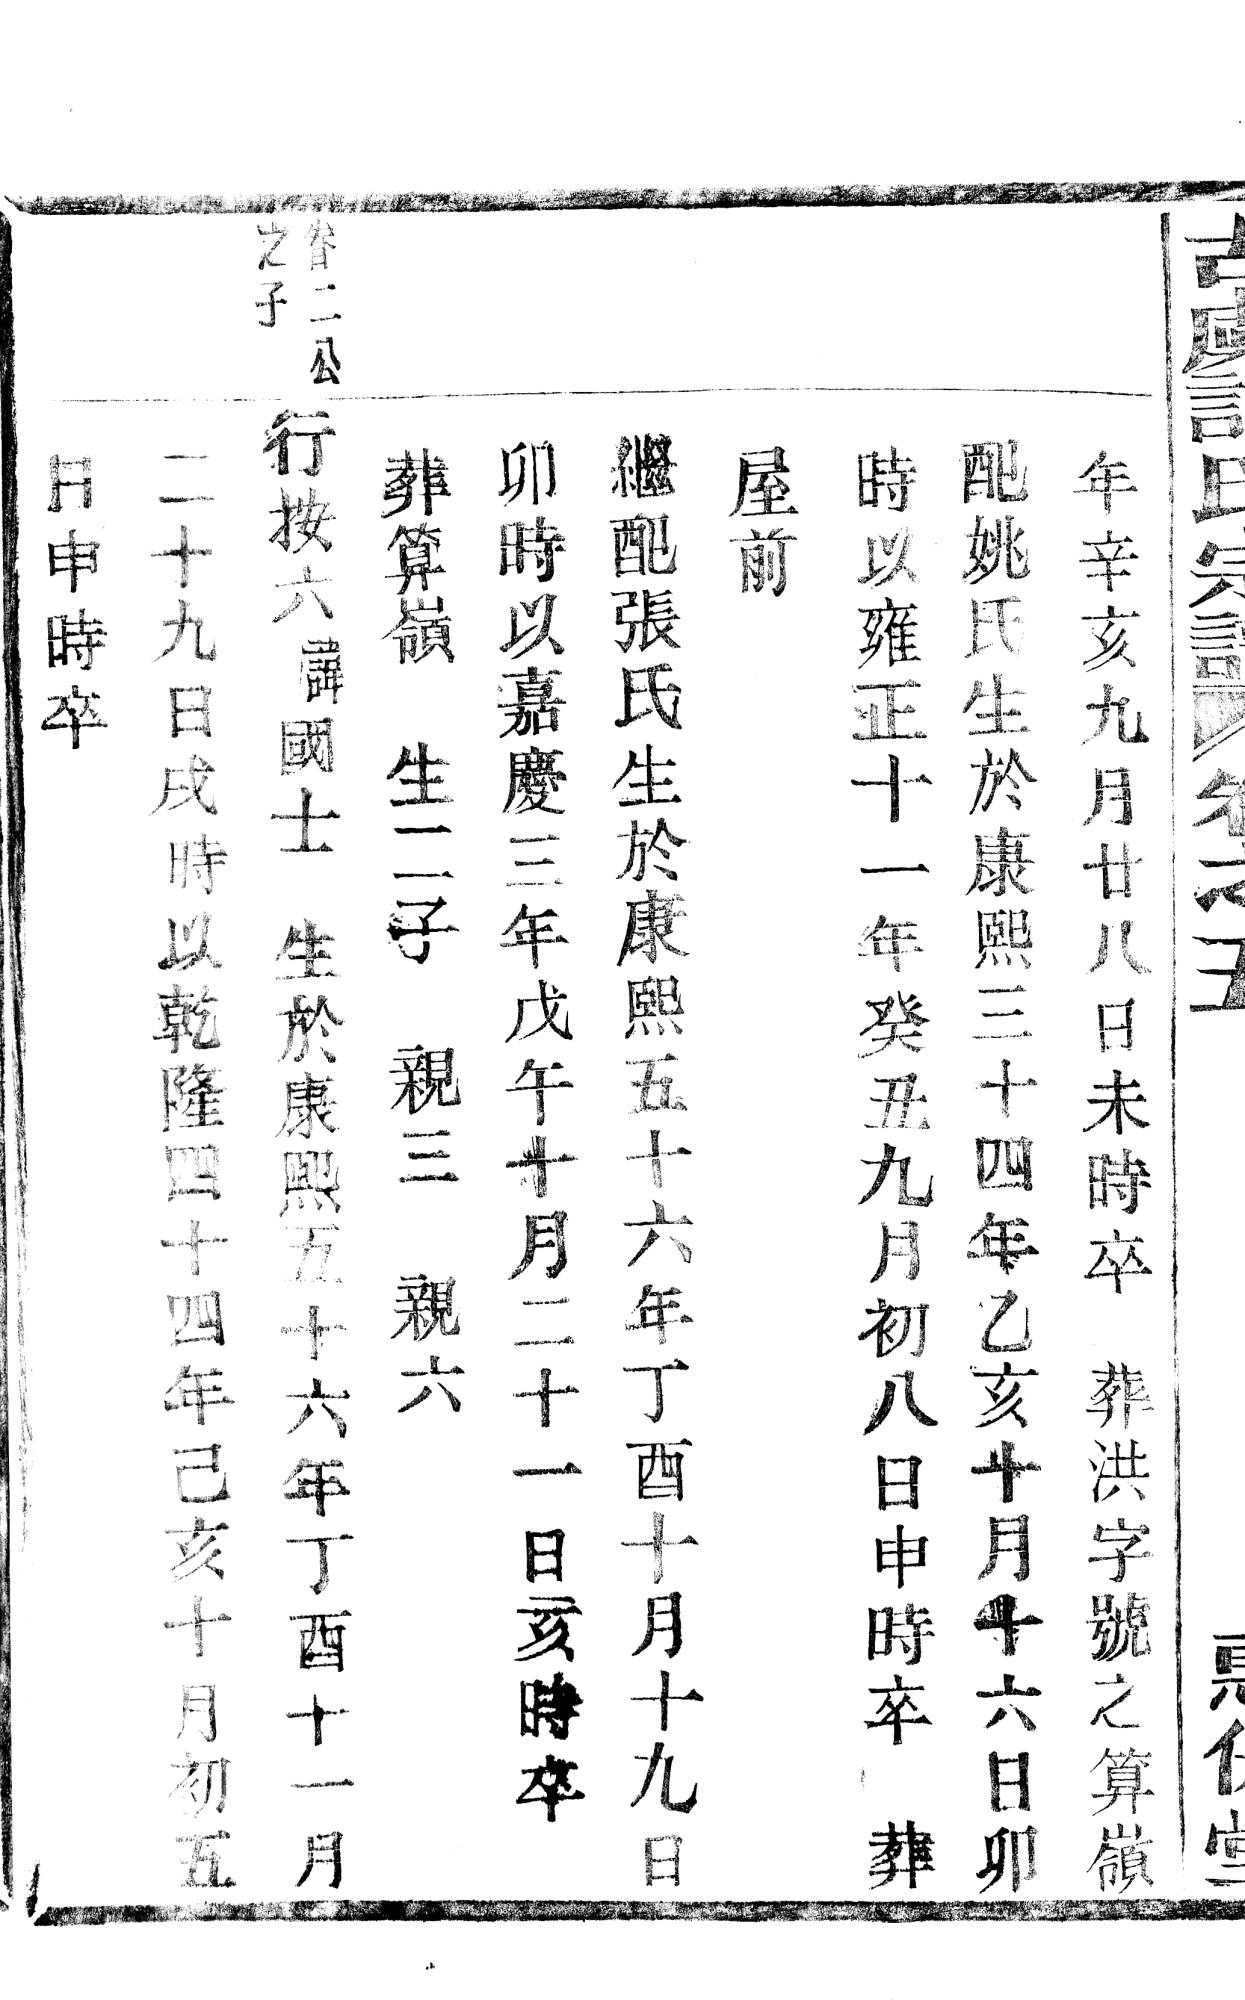 年辛亥九月廿八日未時卒　葬洪字號之算嶺
配姚氏生於康熙三十四年乙亥十月十六日卯
時以雍正十一年癸丑九月初八日申時卒　葬
屋前
繼配張氏生於康熙五十六年丁酉十月十九日
卯時以嘉慶三年戊午十月二十一日亥時卒
葬算嶺　生二子　親三　親六
二公
之子
行按六諱國士　生於康熙五十六年丁酉十一月
二十九日戌時以乾隆四十四年己亥十月初五
日申時卒